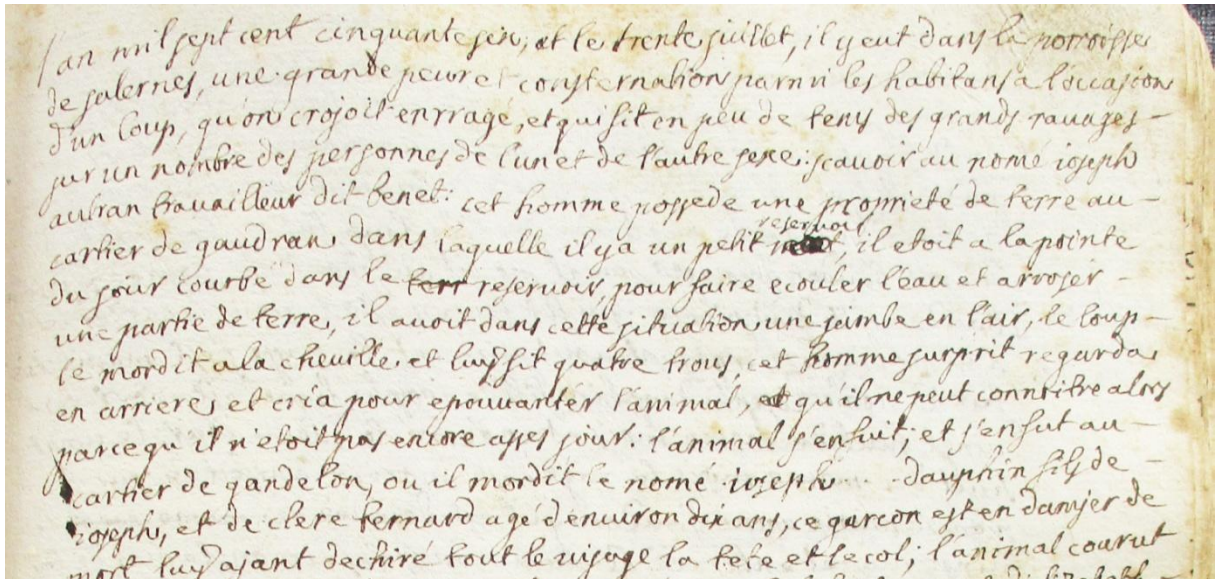 l'an mil sept cent cinquante six, et le trente juillet, il y eut dans la parroisse
de salernes, une grande peur et consternation parmi les habitans a l'occasion
d'un loup, qu'on crojoit enrragé, et qui fit en peu de tems des grands ravages -
sur un nombre des personnes de l'un et de l'autre sexe: scavoir au nomé joseph
autran travailleur dit benet: cet homme possede une proprieté de terre au -
cartier de gaudran, dans laquelle il y a un petit reservoir, il etoit a la pointe
du jour courbé dans le terr reservoir, pour faire ecouler l'eau et arroser -
une partie de terre, il avoit dans cette situation une jambe en l'air, le loup -
le mordit a la cheville, et luy fit quatre trous, cet homme surprit regarda
en arriere, et cria pour epouvanter l'animal, et qu'il ne peut connoitre alors
parce qu'il n'etoit pas encore asses jour: l'animal s'enfuit; et s'en fut au -
cartier de gandelon, ou il mordit le nomé joseph dauphin fils de -
joseph, et de clere bernard agé d'environ dix ans, ce garcon est en danjer de
mort luy ajant dechiré tout le visage la tete et le col; l'animal courut